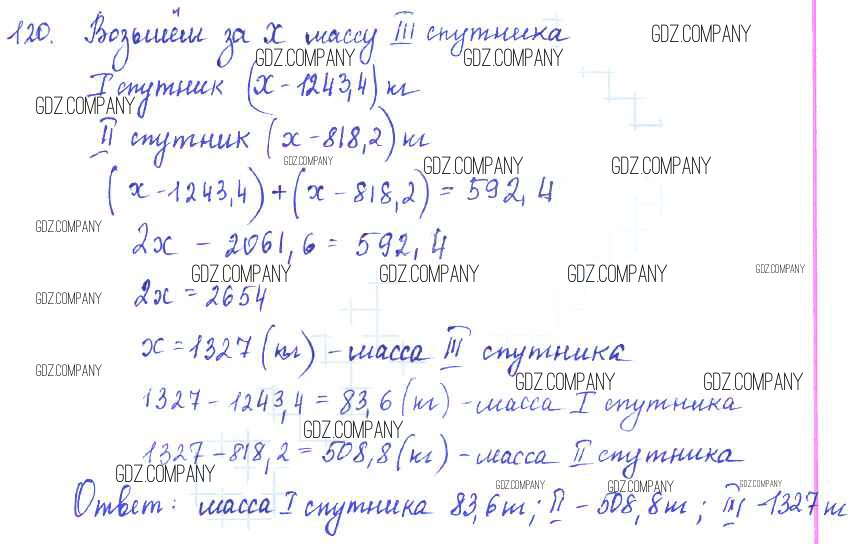 120. Возьмём за x массу III спутника
GDZ.COMPANY
GDZ.COMPANY GDZ.COMPANY
I спутник (x - 1243,4) кг
GDZ.COMPANY
II спутник (x - 818,2) кг
GDZ.COMPANY GDZ.COMPANY GDZ.COMPANY
(x - 1243,4) + (x - 818,2) = 592,4
GDZ.COMPANY
2x - 2061,6 = 592,4
GDZ.COMPANY GDZ.COMPANY GDZ.COMPANY GDZ.COMPANY
GDZ.COMPANY
2x = 2654
x = 1327 (кг) - масса III спутника
GDZ.COMPANY
GDZ.COMPANY GDZ.COMPANY
1327 - 1243,4 = 83,6 (кг) - масса I спутника
GDZ.COMPANY
1327 - 818,2 = 508,8 (кг) - масса II спутника
GDZ.COMPANY
GDZ.COMPANY GDZ.COMPANY GDZ.COMPANY
Ответ: масса I спутника 83,6 кг; II - 508,8 кг; III - 1327 кг